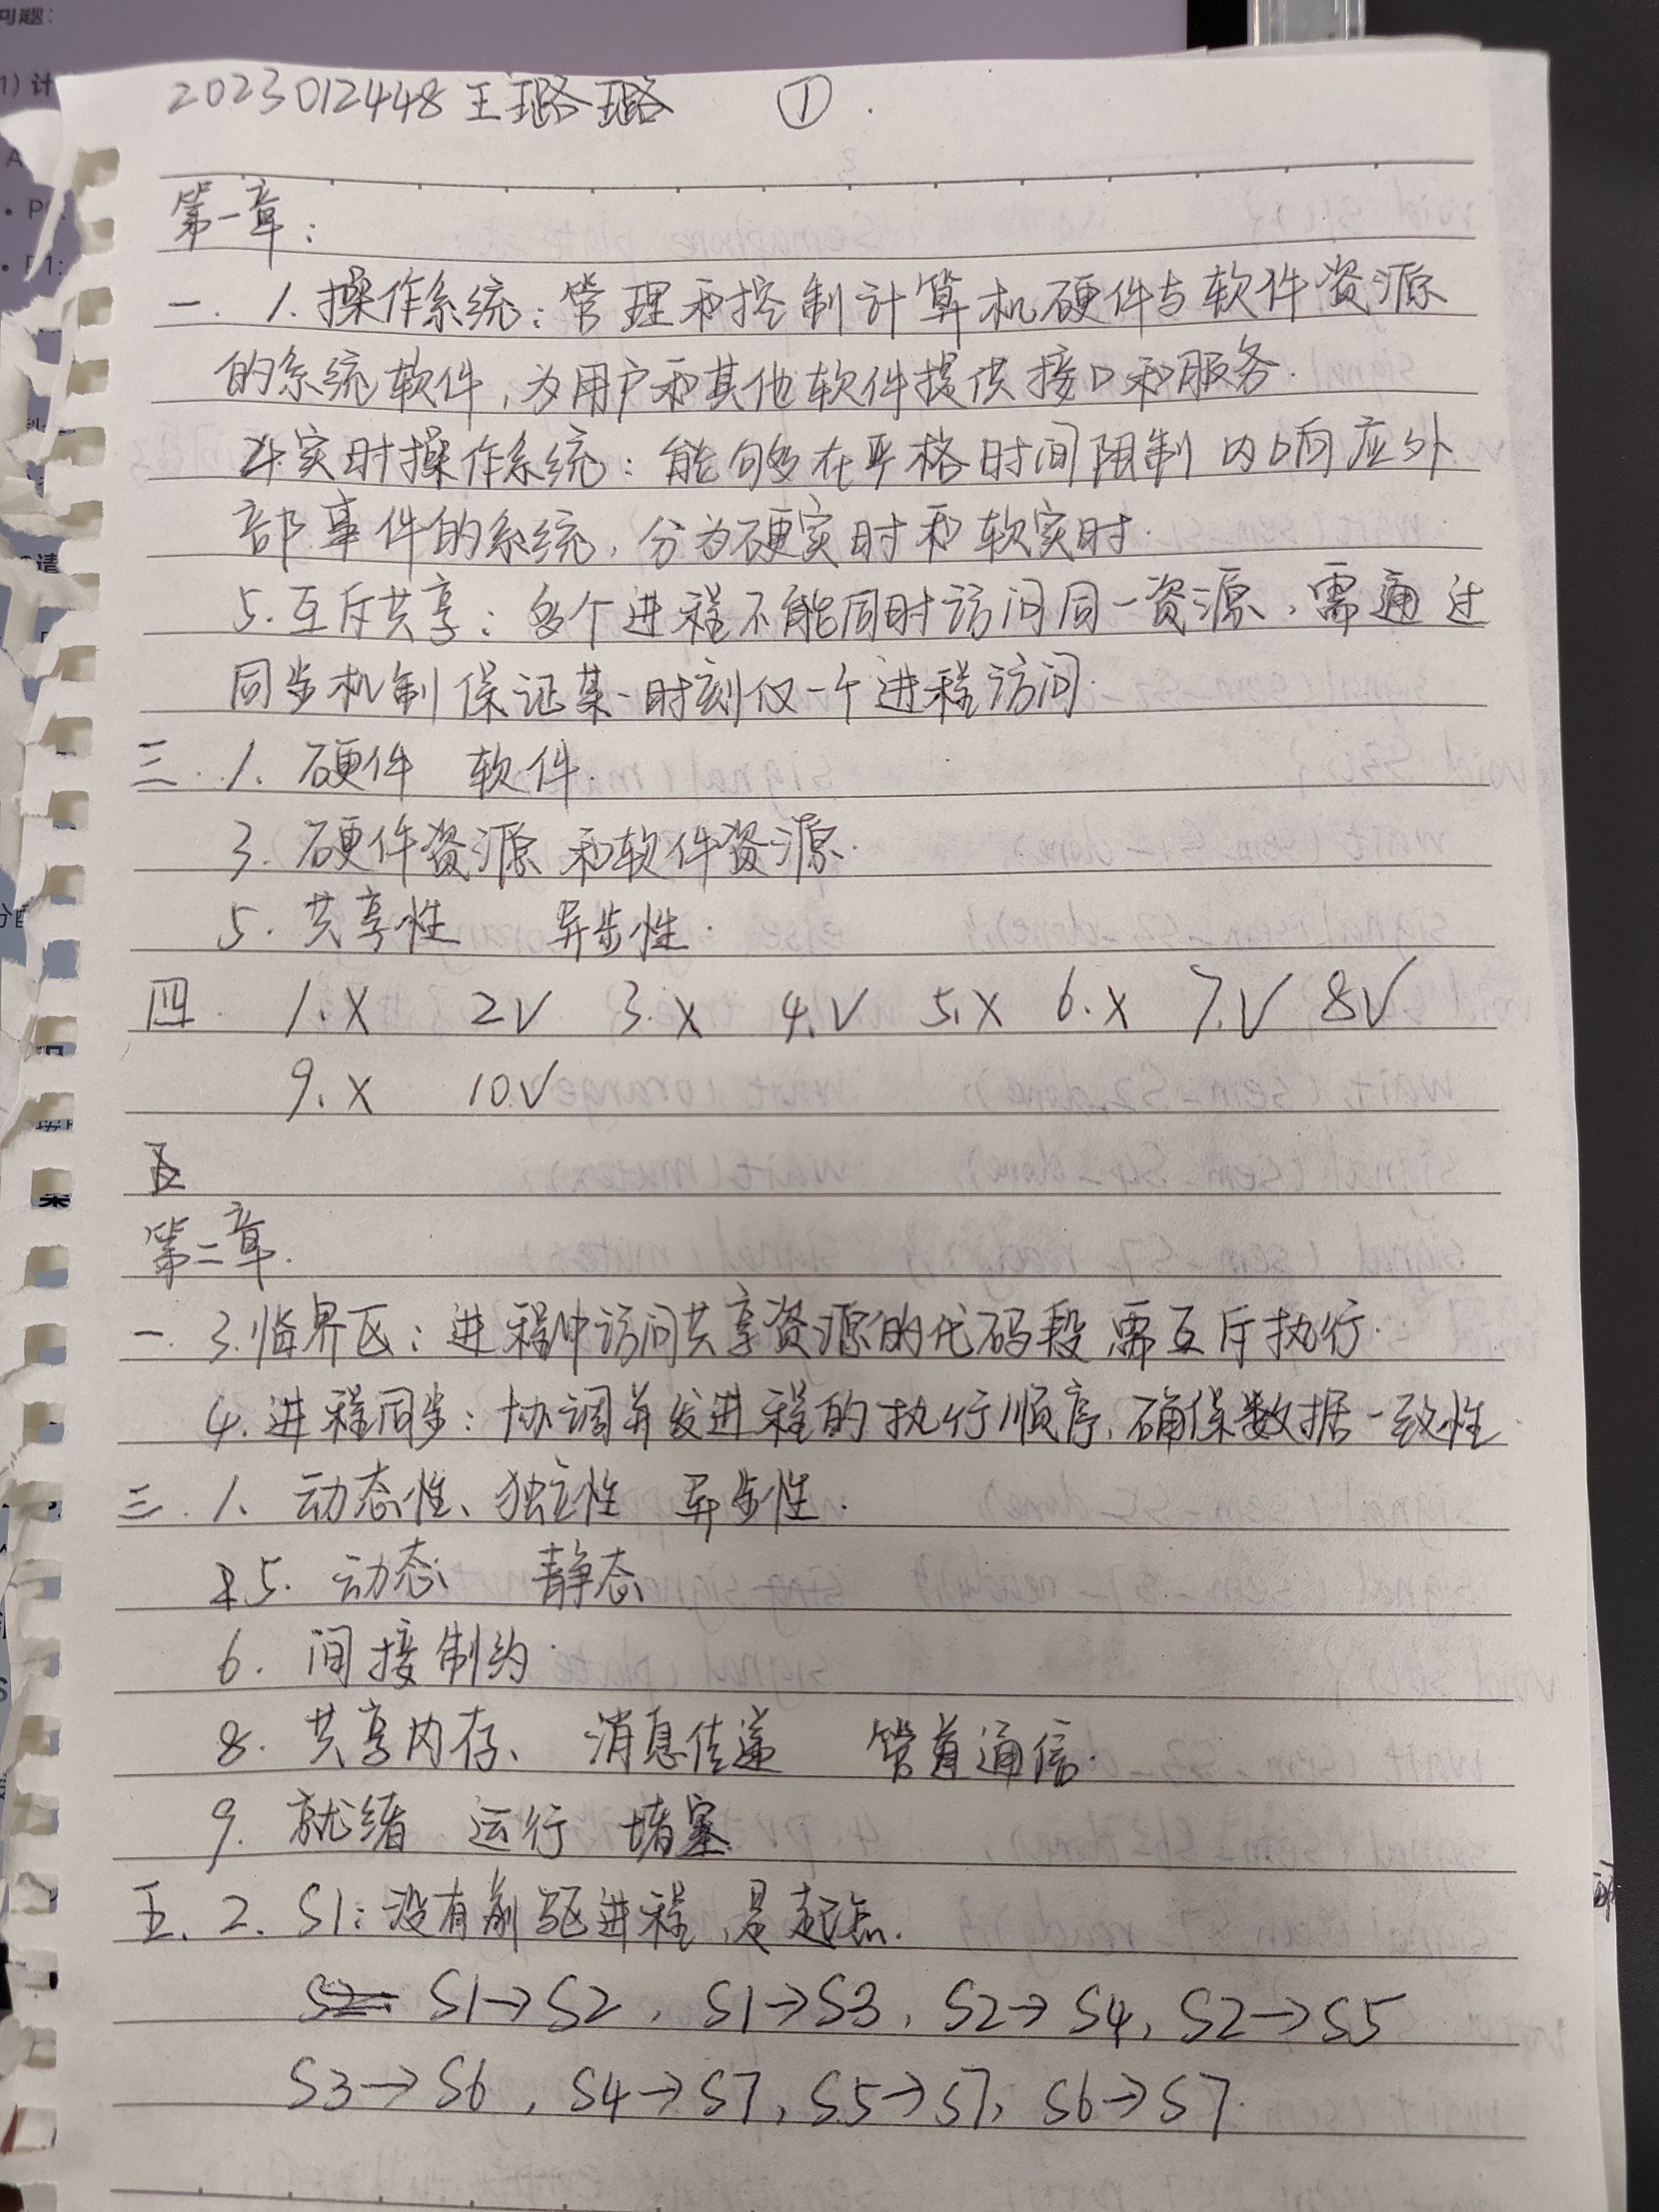 2023012448 王璐璐 ①
第一章:
一. 1. 操作系统: 管理和控制计算机硬件与软件资源
的系统软件, 为用户和其他软件提供接口和服务.
4. 实时操作系统: 能够在严格时间限制内响应外
部事件的系统, 分为硬实时和软实时.
5. 互斥共享: 多个进程不能同时访问同一资源, 需通过
同步机制保证某一时刻仅一个进程访问.
三. 1. 硬件 软件.
3. 硬件资源 和软件资源.
5. 共享性 异步性.
四. 1. X 2 V 3. X 4. V 5. X 6. X 7. V 8 V
9. X 10. V
五
第二章.
一. 3. 临界区: 进程中访问共享资源的代码段 需互斥执行.
4. 进程同步: 协调并发进程的执行顺序, 确保数据一致性.
三. 1. 动态性、独立性 异步性.
5. 动态 静态
6. 间接制约.
8. 共享内存、 消息传递 管道通信.
9. 就绪 运行 堵塞
五. 2. S1: 没有前驱进程, 是起点.
S1→S2, S1→S3, S2→S4, S2→S5
S3→S6, S4→S7, S5→S7, S6→S7.